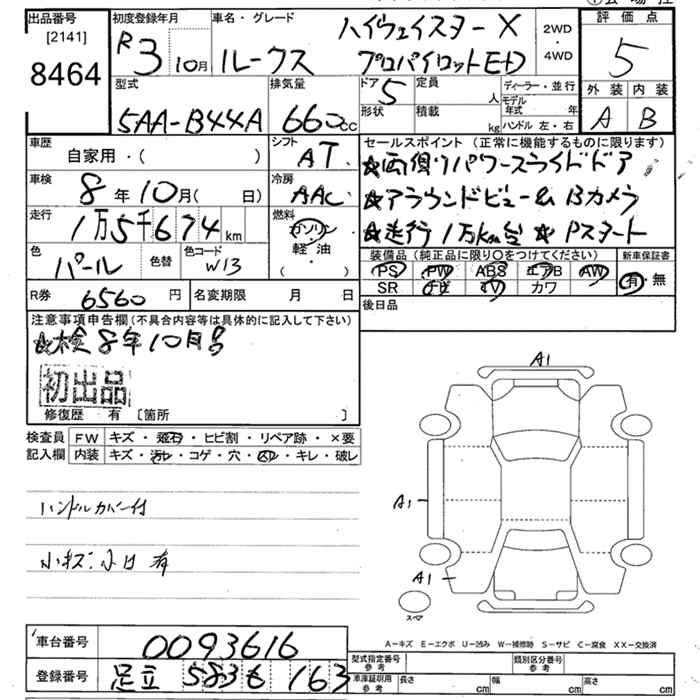 出品番号
[2141]
8464
初度登録年月
R3 10月
車名・グレード
ルークス
ハイウェイスターX
プロパイロットED
2WD
・
4WD
評価点
5
外装 内装
A B
型式
5AA-B44A
排気量
660cc
ドア
5
定員
人
形状
積載
kg
ディーラー・並行
モデル年式 年
ハンドル 左・右
車歴
自家用・( )
シフト
AT
セールスポイント(正常に機能するものに限ります)
☆両側パワースライドドア
☆アラウンドビュー&Bカメラ
☆走行1万km台 ☆Pスタート
車検
8年10月( 日)
冷房
AAC
走行
1万5千674km
燃料
ガソリン
軽・油
・( )
色
パール
色替
色コード
W13
装備品(純正品に限り○をつけてください)
PS PW ABS エアB AW
SR ナビ TV カワ
新車保証書
有・無
R券
6560円
名変期限 月 日
後日品
注意事項申告欄(不具合内容等は具体的に記入して下さい)
☆検8年10月号
初出品
修復歴 有 [箇所 ]
検査員
記入欄
FW キズ・飛石・ヒビ割・リペア跡・×要
内装 キズ・汚れ・コゲ・穴・スリ・キレ・破レ
ハンドルカバー付
小キズ・小凹有
A1
A1
A1
スペア
A-キズ E-エクボ U-凹み W-補修跡 S-サビ C-腐食 XX-交換済
車台番号
0093616
登録番号
足立 583 も 163
型式指定番号
参考
類別区分番号
参考
車庫証明用
参考
長さ cm
幅 cm
高さ cm